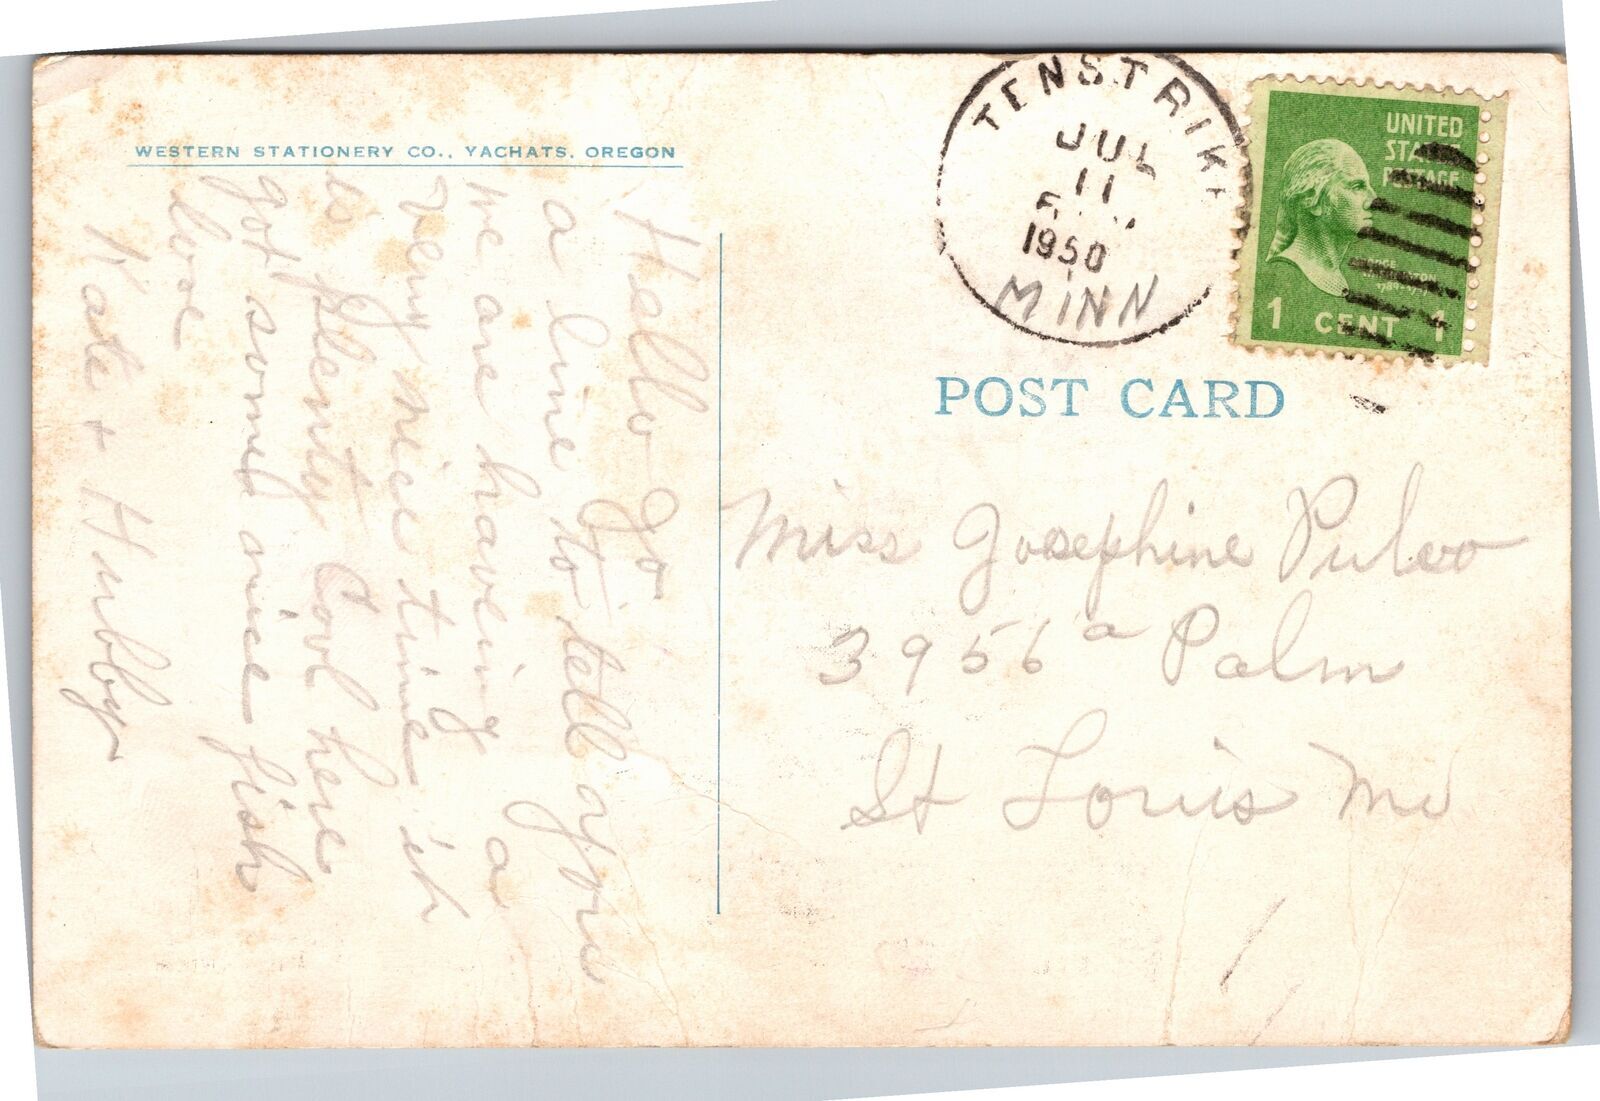 WESTERN STATIONERY CO., YACHATS, OREGON
Hello Jo
a line to tell you
we are having a
very nice time it
is plenty Cool here
got some nice fish
love
Kate + Hubby
TENSTRIKE
JUL
11
1950
MINN
UNITED
STATES
POSTAGE
1 CENT 1
POST CARD
Miss Josephine Puleo
3956a Palm
St Louis Mo